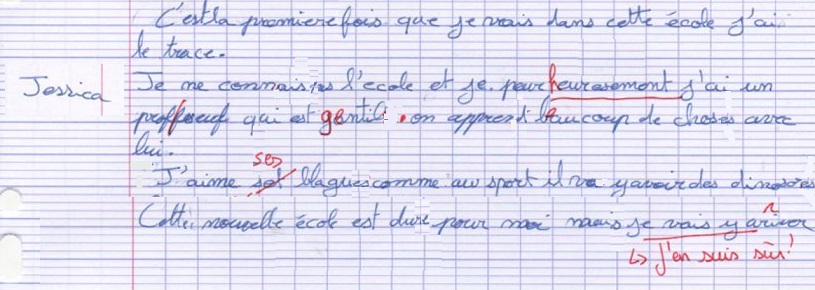 C'est la premiere fois que je vais dans cette école j'ai
le trace.
Jessica
Je ne connais pas l'ecole et je peur heuresement j'ai un
proffeseuf qui est gentil. on apprend beaucoup de choses avec
lui.
ses
J'aime set blagues comme au sport il va y avoir des
Cette nouvelle école est dure pour moi mais je vais y ariver
r
↳ J'en suis sûr!